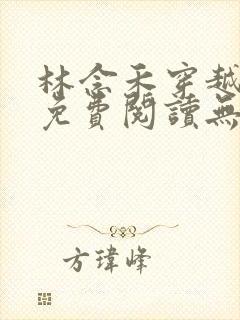 林念禾穿越
免費閱讀無
方瑋峰